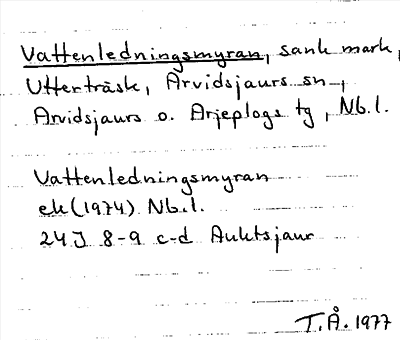 Vattenledningsmyran, sank mark,
Utterträsk, Arvidsjaurs sn,
Arvidsjaurs o. Arjeplogs tg, Nb.l.
Vattenledningsmyran
ek (1974) Nb.l.
24J 8-9 c-d Auktsjaur
T.Å. 1977